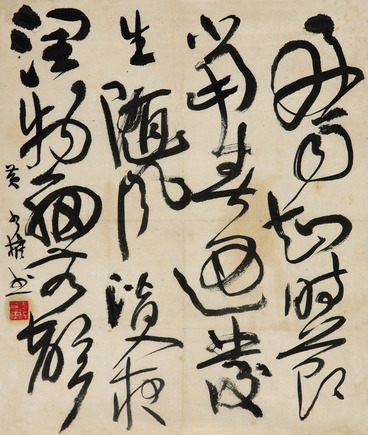 好雨知時節
當春迺發
生隨風潛入夜
潤物細無聲
黄 书